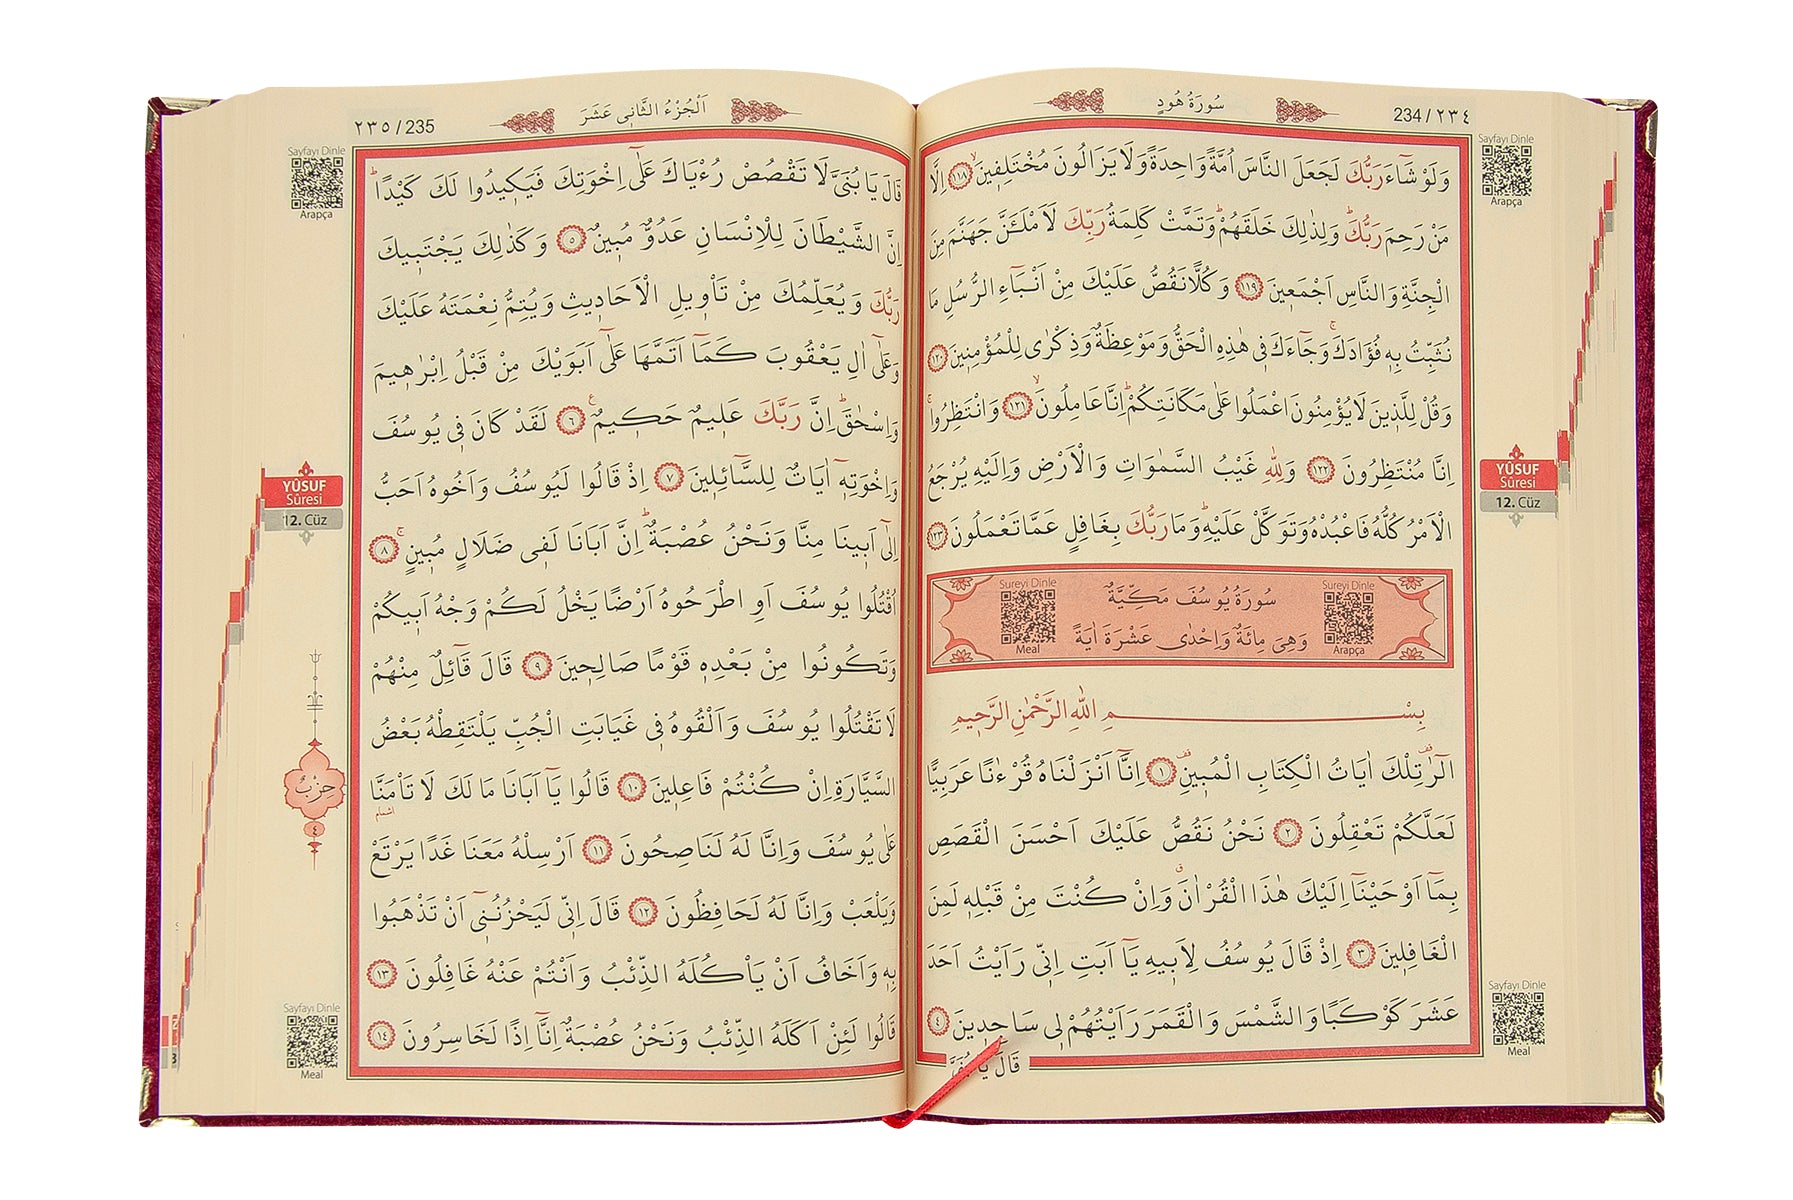 سُورَةُ هُودٍ
234 / ٢٣٤
Sayfayı Dinle
Arapça
وَلَوْ شَٓاءَ رَبُّكَ لَجَعَلَ النَّاسَ اُمَّةً وَاحِدَةً وَلَا يَزَالُونَ مُخْتَلِف۪ينَۙ ﴿١١٨﴾ اِلَّا
مَنْ رَحِمَ رَبُّكَۜ وَلِذٰلِكَ خَلَقَهُمْۜ وَتَمَّتْ كَلِمَةُ رَبِّكَ لَاَمْلَـَٔنَّ جَهَنَّمَ مِنَ
الْجِنَّةِ وَالنَّاسِ اَجْمَع۪ينَ ﴿١١٩﴾ وَكُلًّا نَقُصُّ عَلَيْكَ مِنْ اَنْبَٓاءِ الرُّسُلِ مَا
نُثَبِّتُ بِه۪ فُؤٰادَكَۚ وَجَٓاءَكَ ف۪ي هٰذِهِ الْحَقُّ وَمَوْعِظَةٌ وَذِكْرٰى لِلْمُؤْمِن۪ينَ ﴿١٢٠﴾
وَقُلْ لِلَّذ۪ينَ لَا يُؤْمِنُونَ اعْمَلُوا عَلٰى مَكَانَتِكُمْۜ اِنَّا عَامِلُونَۙ ﴿١٢١﴾ وَانْتَظِرُواۚ
اِنَّا مُنْتَظِرُونَ ﴿١٢٢﴾ وَلِلّٰهِ غَيْبُ السَّمٰوَاتِ وَالْاَرْضِ وَاِلَيْهِ يُرْجَعُ
الْاَمْرُ كُلُّهُ فَاعْبُدْهُ وَتَوَكَّلْ عَلَيْهِۜ وَمَا رَبُّكَ بِغَافِلٍ عَمَّا تَعْمَلُونَ ﴿١٢٣﴾
YÛSUF
Sûresi
12. Cüz
Sureyi Dinle
Meal
سُورَةُ يُوسُفَ مَكِّيَّةٌ
وَهِيَ مِائَةٌ وَاِحْدٰى عَشْرَةَ اٰيَةً
Sureyi Dinle
Arapça
بِسْمِ اللّٰهِ الرَّحْمٰنِ الرَّح۪يمِ
الٓرٰ۠ تِلْكَ اٰيَاتُ الْكِتَابِ الْمُب۪ينِ۠ ﴿١﴾ اِنَّٓا اَنْزَلْنَاهُ قُرْءٰنًا عَرَبِيًّا
لَعَلَّكُمْ تَعْقِلُونَ ﴿٢﴾ نَحْنُ نَقُصُّ عَلَيْكَ اَحْسَنَ الْقَصَصِ
بِمَٓا اَوْحَيْنَٓا اِلَيْكَ هٰذَا الْقُرْاٰنَۗ وَاِنْ كُنْتَ مِنْ قَبْلِه۪ لَمِنَ
الْغَافِل۪ينَ ﴿٣﴾ اِذْ قَالَ يُوسُفُ لِاَب۪يهِ يَٓا اَبَتِ اِنّ۪ي رَاَيْتُ اَحَدَ
عَشَرَ كَوْكَبًا وَالشَّمْسَ وَالْقَمَرَ رَاَيْتُهُمْ ل۪ي سَاجِد۪ينَ ﴿٤﴾
قَالَ يَا
Sayfayı Dinle
Meal
اَلْجُزْءُ الثَّان۪ي عَشَرَ
٢٣٥ / 235
Sayfayı Dinle
Arapça
قَالَ يَا بُنَيَّ لَا تَقْصُصْ رُءْيَاكَ عَلٰٓى اِخْوَتِكَ فَيَك۪يدُوا لَكَ كَيْدًاۜ
اِنَّ الشَّيْطَانَ لِلْاِنْسَانِ عَدُوٌّ مُب۪ينٌ ﴿٥﴾ وَكَذٰلِكَ يَجْتَب۪يكَ
رَبُّكَ وَيُعَلِّمُكَ مِنْ تَأْو۪يلِ الْاَحَاد۪يثِ وَيُتِمُّ نِعْمَتَهُ عَلَيْكَ
وَعَلٰٓى اٰلِ يَعْقُوبَ كَمَٓا اَتَمَّهَا عَلٰٓى اَبَوَيْكَ مِنْ قَبْلُ اِبْرٰه۪يمَ
وَاِسْحٰقَۜ اِنَّ رَبَّكَ عَل۪يمٌ حَك۪يمٌ۟ ﴿٦﴾ لَقَدْ كَانَ ف۪ي يُوسُفَ
وَاِخْوَتِه۪ٓ اٰيَاتٌ لِلسَّٓائِل۪ينَ ﴿٧﴾ اِذْ قَالُوا لَيُوسُفُ وَاَخُوهُ اَحَبُّ
اِلٰٓى اَب۪ينَا مِنَّا وَنَحْنُ عُصْبَةٌۜ اِنَّ اَبَانَا لَف۪ي ضَلَالٍ مُب۪ينٍۚ ﴿٨﴾
اُقْتُلُوا يُوسُفَ اَوِ اطْرَحُوهُ اَرْضًا يَخْلُ لَكُمْ وَجْهُ اَب۪يكُمْ
وَتَكُونُوا مِنْ بَعْدِه۪ قَوْمًا صَالِح۪ينَ ﴿٩﴾ قَالَ قَٓائِلٌ مِنْهُمْ
لَا تَقْتُلُوا يُوسُفَ وَاَلْقُوهُ ف۪ي غَيَابَتِ الْجُبِّ يَلْتَقِطْهُ بَعْضُ
السَّيَّارَةِ اِنْ كُنْتُمْ فَاعِل۪ينَ ﴿١٠﴾ قَالُوا يَٓا اَبَانَا مَا لَكَ لَا تَأْمَنَّا
اشمام
عَلٰى يُوسُفَ وَاِنَّا لَهُ لَنَاصِحُونَ ﴿١١﴾ اَرْسِلْهُ مَعَنَا غَدًا يَرْتَعْ
وَيَلْعَبْ وَاِنَّا لَهُ لَحَافِظُونَ ﴿١٢﴾ قَالَ اِنّ۪ي لَيَحْزُنُن۪ٓي اَنْ تَذْهَبُوا
بِه۪ وَاَخَافُ اَنْ يَأْكُلَهُ الذِّئْبُ وَاَنْتُمْ عَنْهُ غَافِلُونَ ﴿١٣﴾
قَالُوا لَئِنْ اَكَلَهُ الذِّئْبُ وَنَحْنُ عُصْبَةٌ اِنَّٓا اِذًا لَخَاسِرُونَ ﴿١٤﴾
YÛSUF
Sûresi
12. Cüz
حِزْبٌ
٤
Sayfayı Dinle
Meal